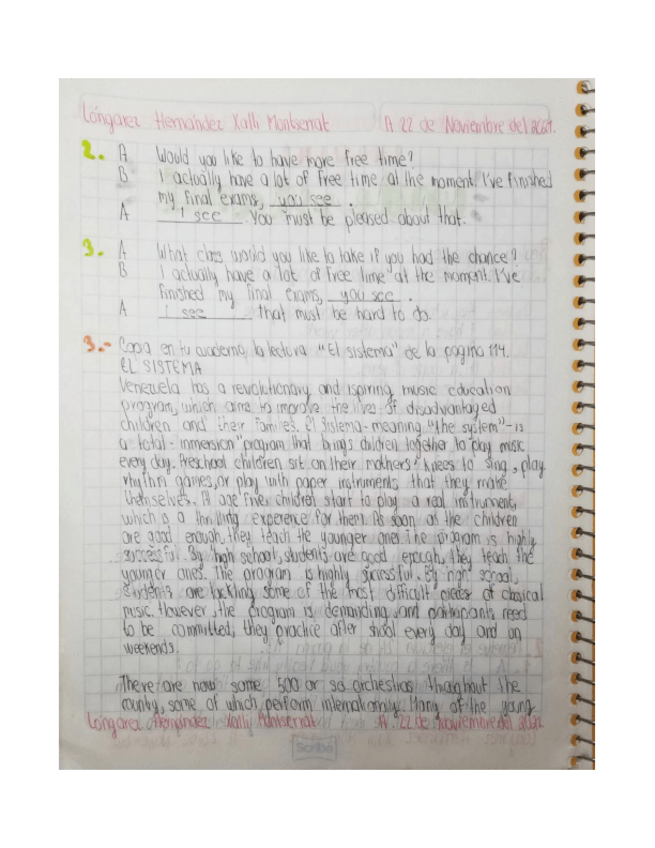 Lóngarez Hernández Xalli Montserrat A 22 de Noviembre del 2021.
2. A Would you like to have more free time?
B I actually have a lot of free time at the moment. I've finished
my final exams, you see .
A I see . You must be pleased about that.
3. A What class would you like to take if you had the chance?
B I actually have a lot of free time at the moment. I've
finished my final exams, you see .
A I see . that must be hard to do.
3.- Copia en tu cuaderno, la lectura "El sistema" de la pagina 114.
EL SISTEMA
Venezuela has a revolutionary and ispiring music education
program, which aims to improve the lives of disadvantaged
children and their families. El Sistema-meaning "the system"-is
a total-inmersion" program that brings children together to play music
every day. Preschool children sit on their mothers' knees to sing, play
rhythm games, or play with paper instruments that they make
themselves. At age five, children start to play a real instrument,
which is a thrilling experience for them. As soon as the children
are good enough, they teach the younger ones. The program is highly
successful. By high school, students are good enough, they teach the
younger ones. The program is highly successful. By high school,
students are tackling some of the most difficult pieces of classical
music. However, the program is demanding, and participants need
to be committed; they practice after school every day and on
weekends.
There are now some 500 or so orchestras throughout the
country, some of which perform internationally. Many of the young
Lóngarez Hernández Xalli Montserrat A 22 de Noviembre del 2021
Scribe